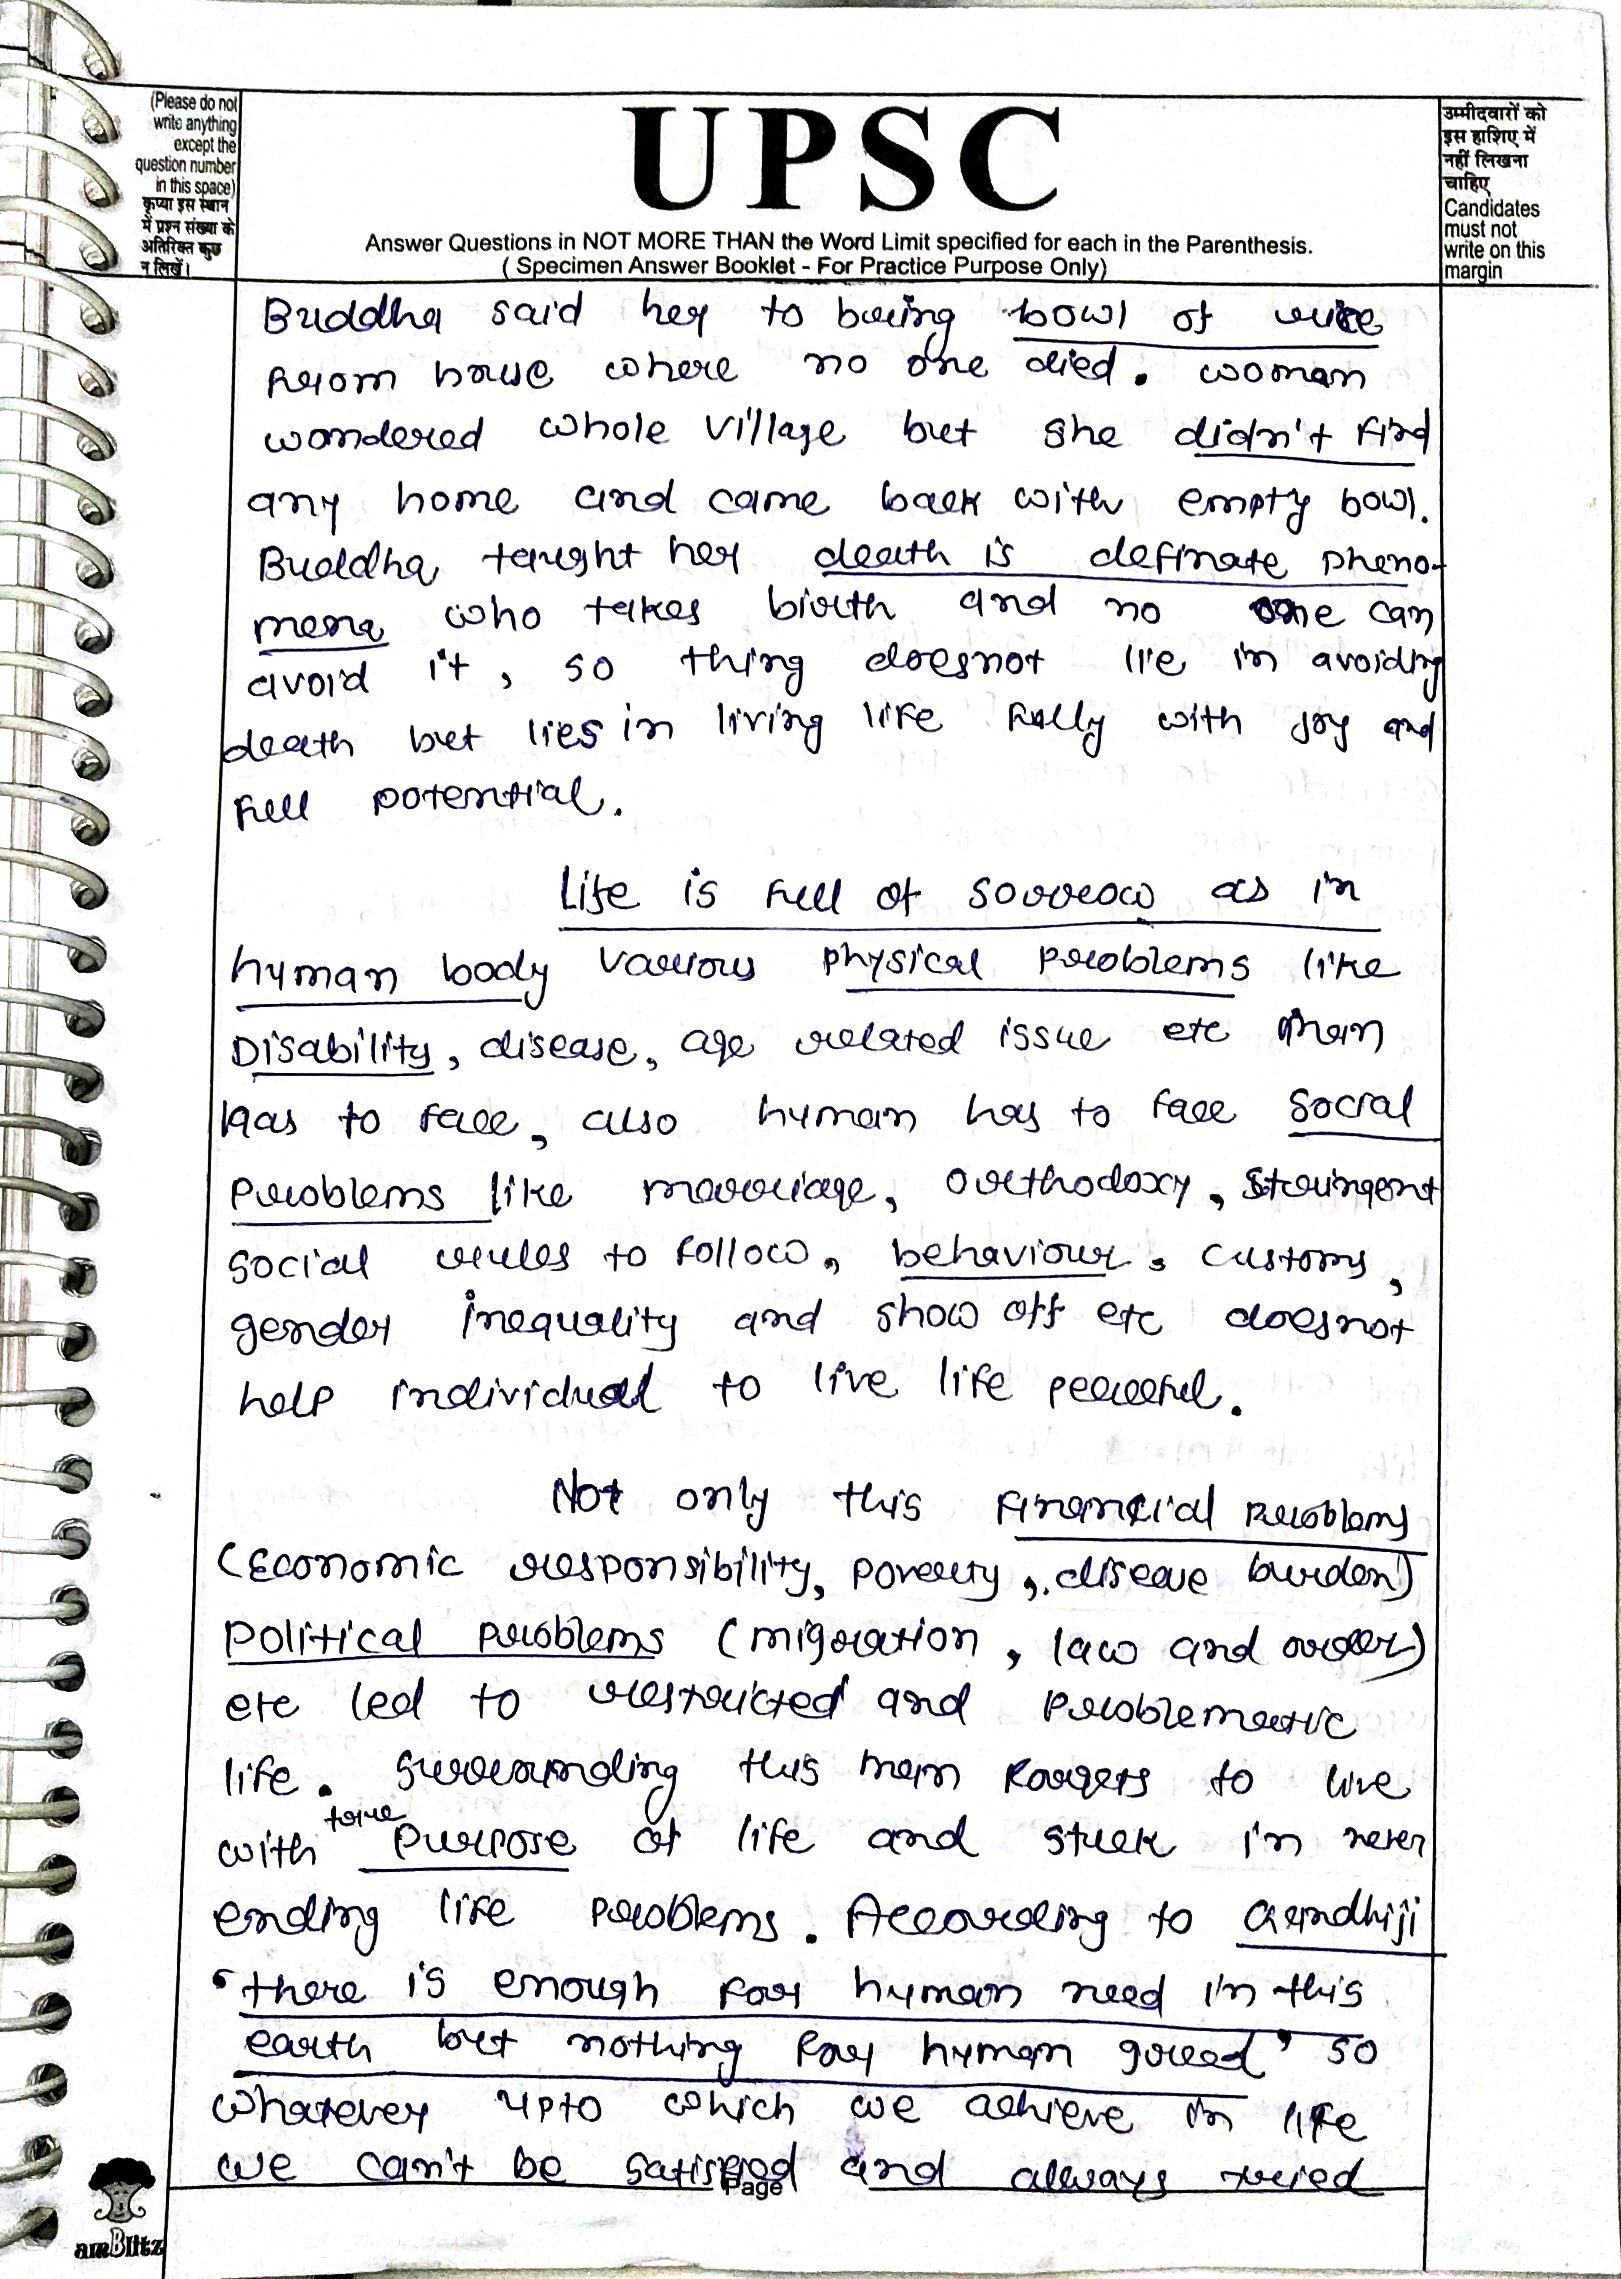 (Please do not
write anything
except the
question number
in this space)
कृप्या इस स्थान
में प्रश्न संख्या के
अतिरिक्त कुछ
न लिखें।
UPSC
Answer Questions in NOT MORE THAN the Word Limit specified for each in the Parenthesis.
( Specimen Answer Booklet - For Practice Purpose Only)
उम्मीदवारों को
इस हाशिए में
नहीं लिखना
चाहिए
Candidates
must not
write on this
margin
Buddha said her to bring bowl of rice
from house where no one died. woman
wondered whole village but she didn't find
any home and came back with empty bowl.
Buddha taught her death is definate pheno-
mena who takes birth and no one can
avoid it, so thing doesnot lie in avoiding
death but lies in living life fully with joy and
full potential.
Life is full of sorrow as in
human body various physical problems like
Disability, disease, age related issue etc man
has to face, also human has to face social
problems like marriage, orthodoxy, stringent
social rules to follow, behaviour, customs,
gender inequality and show off etc doesnot
help individual to live life peaceful.
Not only this financial problems
(Economic responsibility, poverty, disease burden)
political problems (migration, law and order)
etc led to restricted and problematic
life. surrounding this man forgets to live
with true purpose of life and stuck in never
ending life problems. According to Gandhiji
'there is enough for human need in this
earth but nothing for human greed' so
whatever upto which we achieve in life
we can't be satisfied and always tried
Page
amBlitz